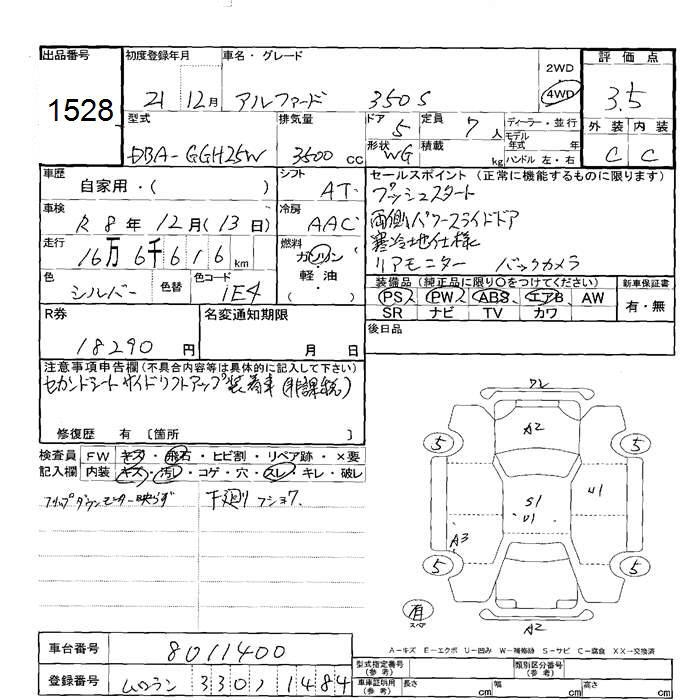 出品番号
1528
初度登録年月
21 12月
車名・グレード
アルファード 350S
2WD
4WD
評価点
3.5
外装 内装
C C
型式
DBA-GGH25W
排気量
3500 cc
ドア 5
形状 WG
定員 7 人
積載 kg
ディーラー・並行
モデル年式 年式
ハンドル 左・右
車歴
自家用・( )
シフト
AT
車検
R 8年 12月(13日)
冷房
AAC
走行
16万 6千 616 km
燃料
ガソリン
軽・油
( )
色
シルバー
色替
色コード
1E4
セールスポイント (正常に機能するものに限ります)
プッシュスタート
両側パワースライドドア
寒冷地仕様
リアモニター バックカメラ
装備品(純正品に限り○をつけてください)
PS PW ABS エアB AW
SR ナビ TV カワ
新車保証書
有・無
後日品
R券
18290 円
名変通知期限
月 日
注意事項申告欄(不具合内容等は具体的に記入して下さい)
セカンドシートサイドリフトアップ装着車(非課税)
修復歴 有 〔箇所 〕
検査員記入欄
FW キズ・飛石・ヒビ割・リペア跡・×要
内装 キズ・汚レ・コゲ・穴・スレ・キレ・破レ
フリップダウンモニター映らず
下廻りフショク
ワレ
A2
5 5
S1
U1
U1
A3
5 5
有
スペア
A2
A-キズ E-エクボ U-凹み W-補修跡 S-サビ C-腐食 XX-交換済
車台番号
8011400
登録番号
ムロラン 330 ソ 1484
型式指定番号(参考)
類別区分番号(参考)
車庫証明用(参考)
長さ cm
幅 cm
高さ cm